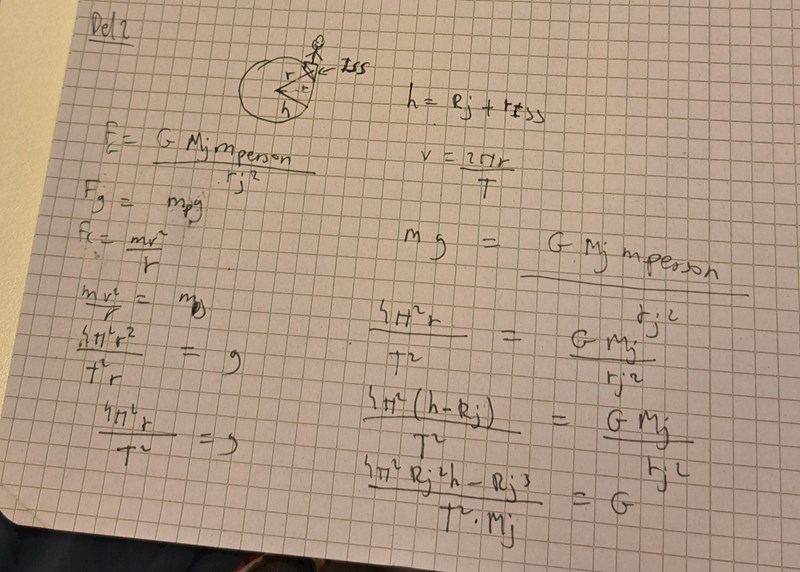 Del 2
r
r
h
ISS
h = Rj + rISS
v = 2πr / T
F_G = G Mj mperson / rj²
Fg = mpg
Fc = mv² / r
mv² / r = mg
4π²r² / T²r = g
4π²r / T² = g
m g = G Mj mperson / rj²
4π²r / T² = G Mj / rj²
4π²(h-Rj) / T² = G Mj / rj²
4π² Rj²h - Rj³ / T² · Mj = G